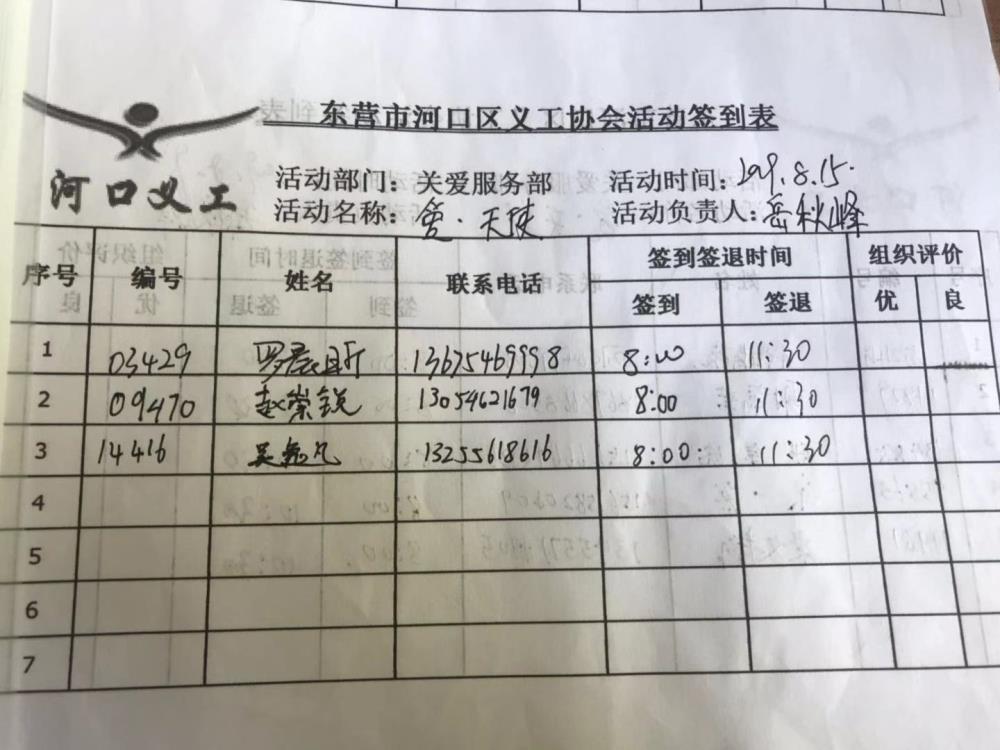 东营市河口区义工协会活动签到表
河口义工
活动部门：关爱服务部 活动时间：2019.8.15.
活动名称：爱·天使 活动负责人：岳秋峰
序号 编号 姓名 联系电话 签到签退时间 组织评价
签到 签退 优 良
1 03429 罗晨昕 13675469998 8:00 11:30
2 09470 赵崇锐 13054621679 8:00 11:30
3 14416 吴凡 13255618616 8:00 11:30
4
5
6
7